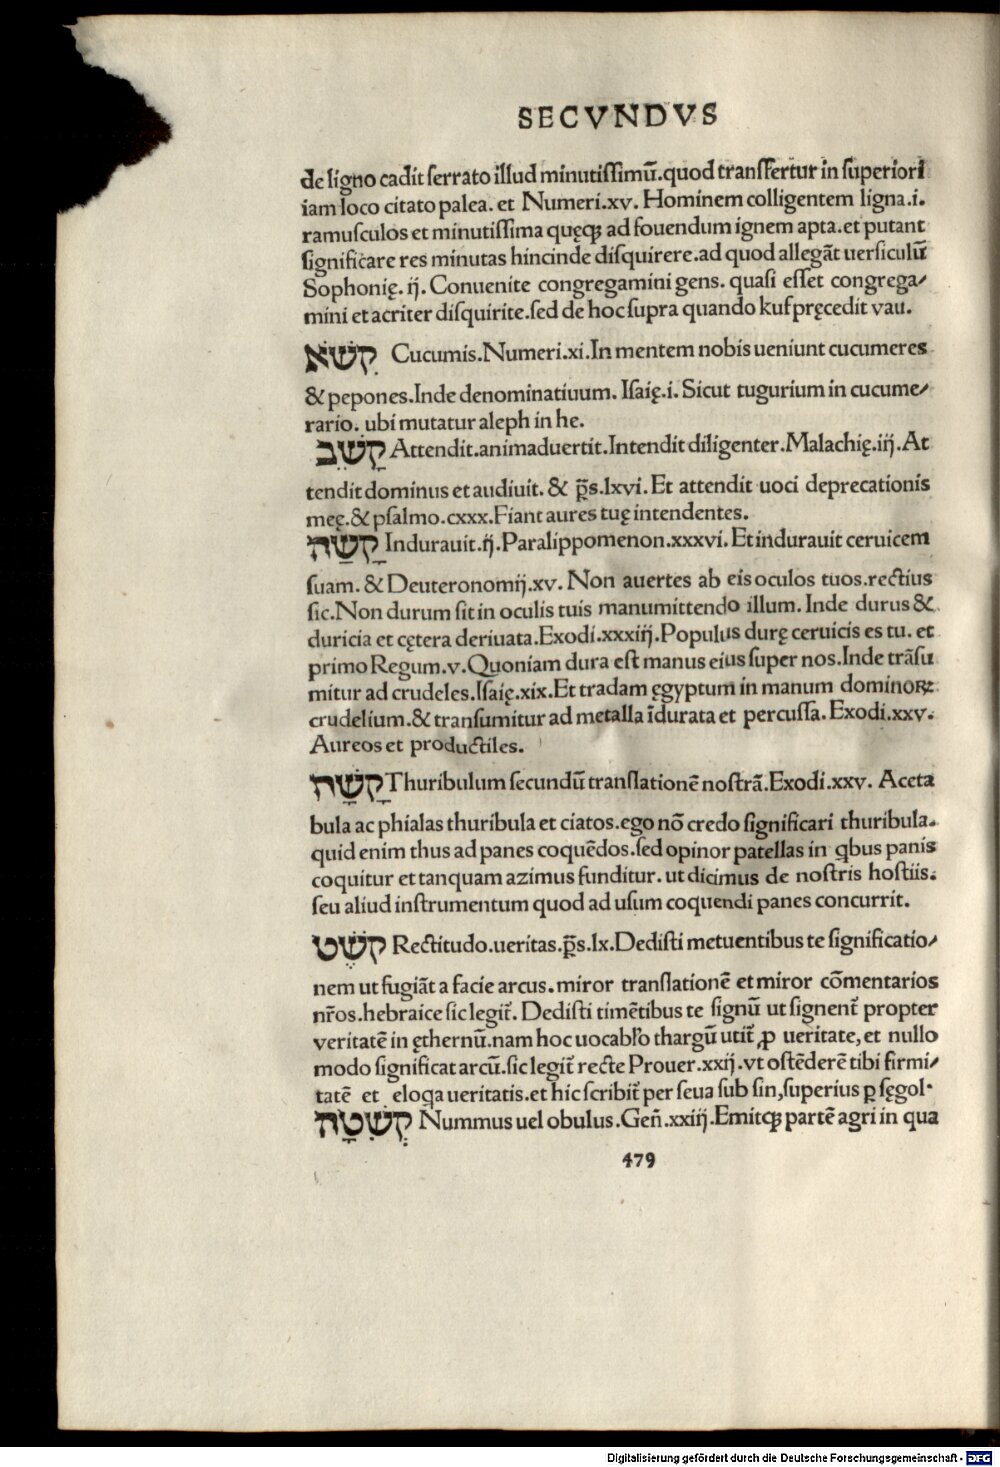 SECVNDVS
de ligno cadit serrato illud minutissimū.quod transfertur in superiori
iam loco citato palea. et Numeri.xv. Hominem colligentem ligna.i.
ramusculos et minutissima quęqꝫ ad fouendum ignem apta.et putant
significare res minutas hincinde disquirere.ad quod allegāt uersiculū
Sophonię. ij. Conuenite congregamini gens. quasi esset congrega/
mini et acriter disquirite.sed de hoc supra quando kuf pręcedit vau.
קִשֹּׁא Cucumis.Numeri.xi.In mentem nobis ueniunt cucumeres
& pepones.Inde denominatiuum. Isaię.i. Sicut tugurium in cucume/
rario. ubi mutatur aleph in he.
קָשַׁב Attendit.animaduertit.Intendit diligenter.Malachię.iij.At
tendit dominus et audiuit. & p̄s.lxvi. Et attendit uoci deprecationis
meę.& psalmo.cxxx.Fiant aures tuę intendentes.
קָשָׁה Indurauit.ij.Paralippomenon.xxxvi. Et indurauit ceruicem
suam. & Deuteronomij.xv. Non auertes ab eis oculos tuos.rectius
sic.Non durum sit in oculis tuis manumittendo illum. Inde durus &
duricia et cętera deriuata.Exodi.xxxiij.Populus durę ceruicis es tu. et
primo Regum.v.Quoniam dura est manus eius super nos.Inde trāsu
mitur ad crudeles.Isaię.xix.Et tradam ęgyptum in manum dominoꝝ
crudelium.& transumitur ad metalla īdurata et percussa. Exodi.xxv.
Aureos et productiles.
קָשָׂה Thuribulum secundū translationē nostrā.Exodi.xxv. Aceta
bula ac phialas thuribula et ciatos.ego nō credo significari thuribula.
quid enim thus ad panes coquēdos.sed opinor patellas in qbus panis
coquitur et tanquam azimus funditur. ut dicimus de nostris hostiis.
seu aliud instrumentum quod ad usum coquendi panes concurrit.
קֹשֶׁט Rectitudo.ueritas.p̄s.lx.Dedisti metuentibus te significatio/
nem ut fugiāt a facie arcus.miror translationē et miror cōmentarios
nr̄os.hebraice sic legit̄. Dedisti timētibus te signū ut signent̄ propter
veritatē in ęthernū.nam hoc uocabl̄o thargū utit̄ ꝓ ueritate, et nullo
modo significat arcū.sic legit̄ recte Prouer.xxij.vt ostēderē tibi firmi/
tatē et eloqa ueritatis.et hic scribit̄ per seua sub sin,superius ꝑ sęgol.
קְשִׂטָה Nummus uel obulus.Geñ.xxiij.Emitqꝫ partē agri in qua
479
Digitalisierung gefördert durch die Deutsche Forschungsgemeinschaft - DFG